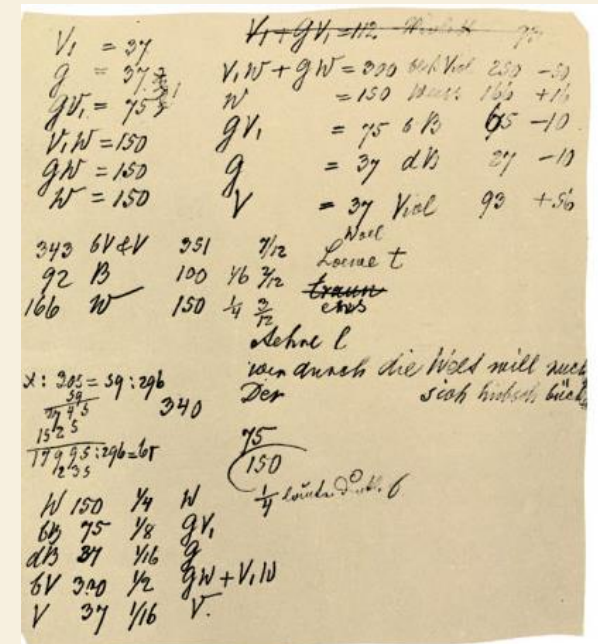 V₁ = 37
g = 37
gV₁ = 75
V₁W = 150
gW = 150
W = 150
V₁ + gV₁ = 112
V₁W + gW = 300 Viol 250 -50
W = 150 166 +16
gV₁ = 75 bB 65 -10
g = 37 dB 27 -10
V = 37 Viol 93 +56
343 bV & V 351 7/12
92 B 100 1/6 2/12
166 W 150 1/4 3/12
t
traun
eins
l
wer durch die Welt will
Der sich hübsch
x : 305 = 59 : 296
340
1525
17995 : 296 =
1235
75
150
1/4
W 150 1/4 W
bB 75 1/8 gV₁
dB 37 1/16 g
bV 300 1/2 gW + V₁W
V 37 1/16 V.